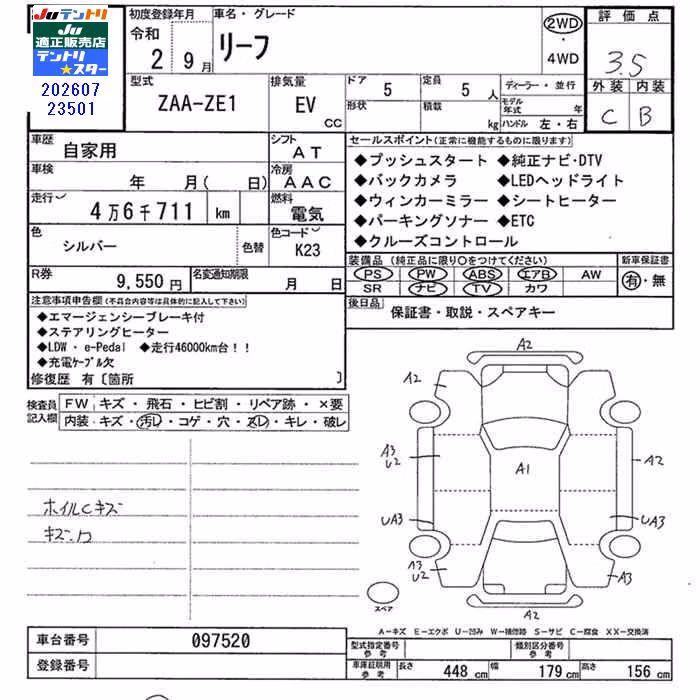 Juテントリ
Ju
適正販売店
テントリ
スター
202607
23501
初度登録年月
令和
2 9月
車名・グレード
リーフ
2WD
・
4WD
評価点
3.5
外装 内装
C B
型式
ZAA-ZE1
排気量
EV
CC
ドア 5
形状
定員 5 人
積載 kg
ディーラー・並行
モデル年式 年
ハンドル 左・右
車歴
自家用
シフト
AT
車検
年 月( 日)
冷房
AAC
走行
4万6千711 km
燃料
電気
色
シルバー
色替
色コード
K23
R券
9,550円
名変通知期限
月 日
セールスポイント(正常に機能するものに限ります)
◆プッシュスタート ◆純正ナビ・DTV
◆バックカメラ ◆LEDヘッドライト
◆ウィンカーミラー ◆シートヒーター
◆パーキングソナー ◆ETC
◆クルーズコントロール
装備品 (純正品に限り○をつけてください)
新車保証書
PS PW ABS エアB AW
SR ナビ TV カワ
有・無
後日品
保証書・取説・スペアキー
注意事項申告欄(不具合内容等は具体的に記入して下さい)
◆エマージェンシーブレーキ付
◆ステアリングヒーター
◆LDW・e-Pedal ◆走行46000km台!!
◆充電ケーブル欠
修復歴 有〔箇所 〕
検査員
記入欄
FW キズ・飛石・ヒビ割・リペア跡・×要
内装 キズ・汚レ・コゲ・穴・スレ・キレ・破レ
ホイルCキズ
A2
A2
A3
U2
A1
A2
UA3
UA3
A3
U2
A3
A2
スペア
A-キズ E-エクボ U-凹み W-補修跡 S-サビ C-腐食 XX-交換済
車台番号
097520
登録番号
型式指定番号
参考
類別区分番号
参考
車庫証明用
参考
長さ 448 cm 幅 179 cm 高さ 156 cm